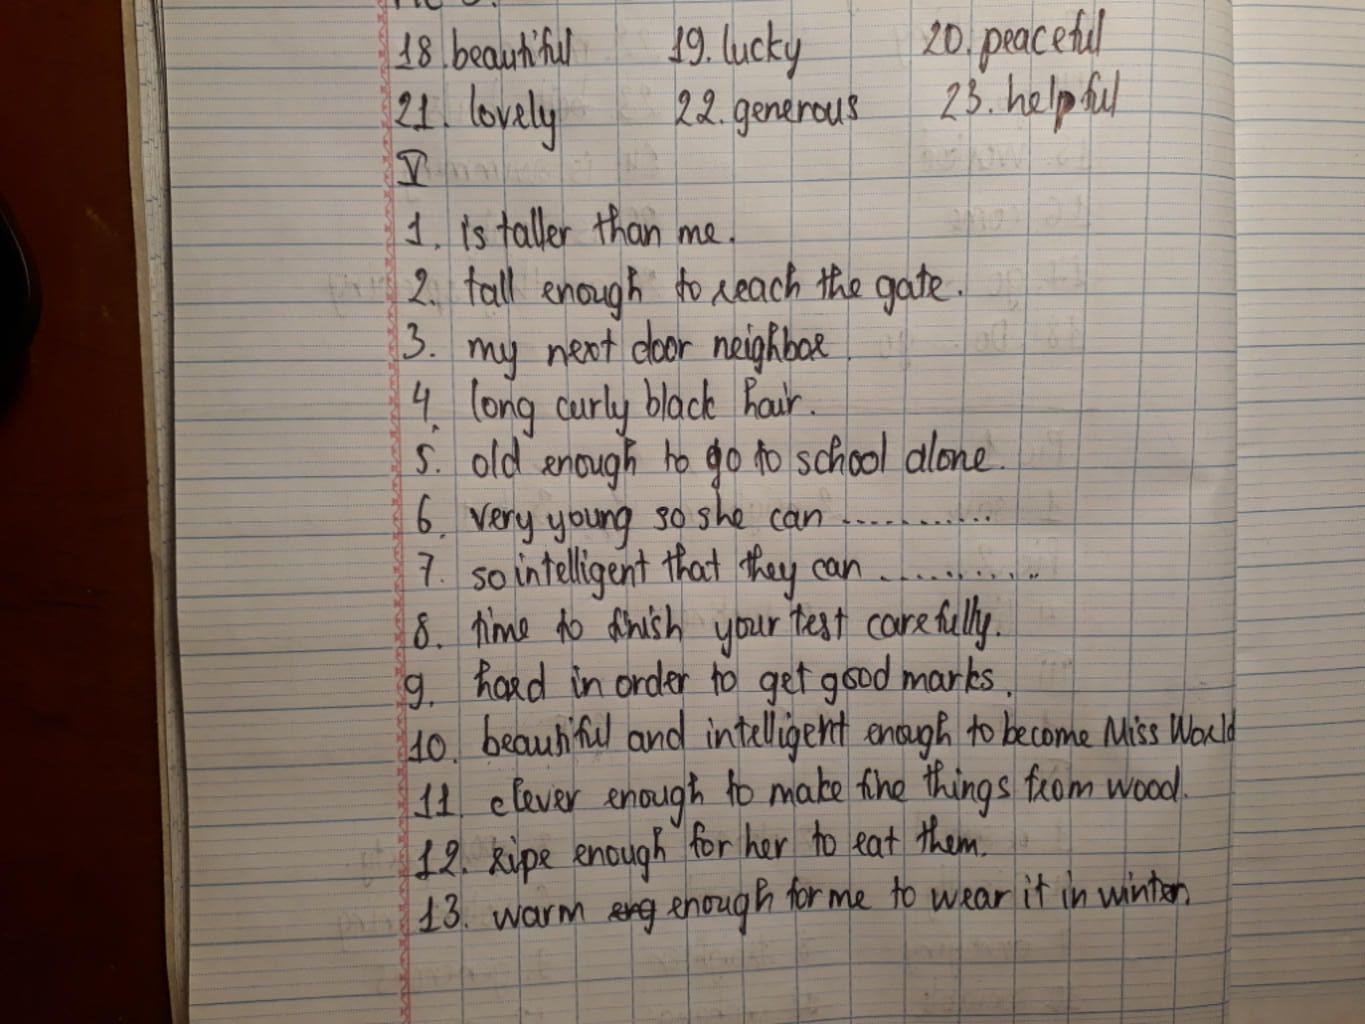 18. beautiful 19. lucky 20. peaceful
21. lovely 22. generous 23. helpful
V
1. is taller than me.
2. tall enough to reach the gate.
3. my next door neighbor.
4. long curly black hair.
5. old enough to go to school alone.
6. very young so she can ...........
7. so intelligent that they can ...........
8. time to finish your test carefully.
9. hard in order to get good marks.
10. beautiful and intelligent enough to become Miss World
11. clever enough to make fine things from wood.
12. ripe enough for her to eat them.
13. warm enough for me to wear it in winter.